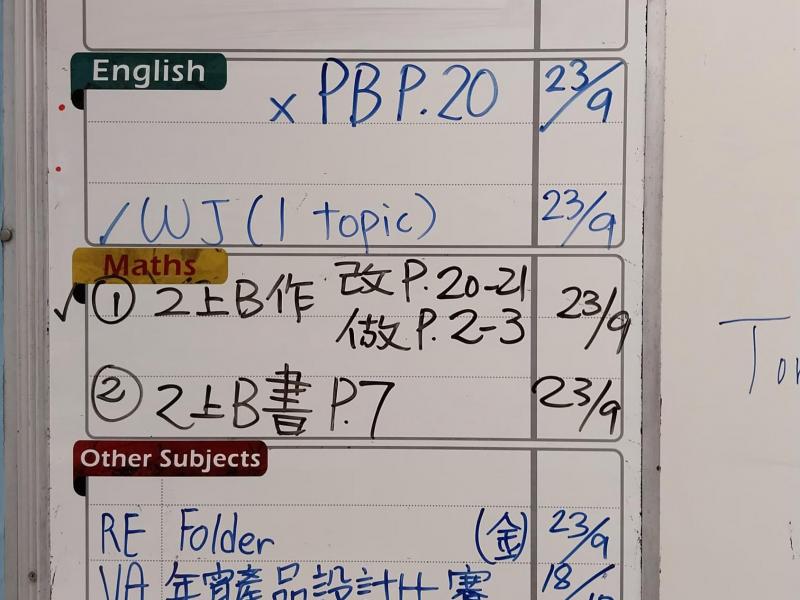 English
x PB P.20 23/9
✓ WJ (1 topic) 23/9
Maths
✓ ① 2上B作 改P.20-21 23/9
做P.2-3
② 2上B書 P.7 23/9
Other Subjects
RE Folder (金) 23/9
VA 年宵產品設計 賽 18/